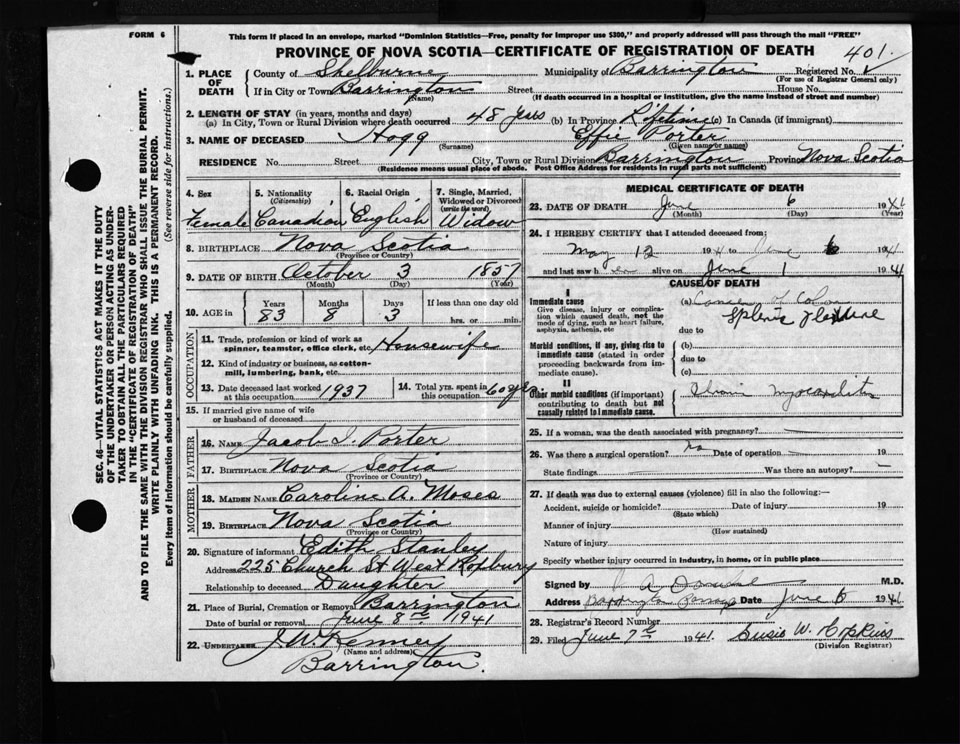 FORM 6
This form if placed in an envelope, marked "Dominion Statistics—Free, penalty for improper use $300," and properly addressed will pass through the mail "FREE"
PROVINCE OF NOVA SCOTIA—CERTIFICATE OF REGISTRATION OF DEATH
401
1. PLACE OF DEATH { County of Shelburne Municipality of Barrington Registered No.
(For use of Registrar General only)
If in City or Town Barrington Street House No.
(Name) (If death occurred in a hospital or institution, give the name instead of street and number)
2. LENGTH OF STAY (in years, months and days)
(a) In City, Town or Rural Division where death occurred 48 yrs (b) In Province Lifetime (c) In Canada (if immigrant)
3. NAME OF DECEASED Hogg Effie Porter
(Surname) (Given name or names)
RESIDENCE No. Street City, Town or Rural Division Barrington Province Nova Scotia
(Residence means usual place of abode. Post Office Address for residents in rural parts not sufficient)
4. Sex 5. Nationality (Citizenship) 6. Racial Origin 7. Single, Married, Widowed or Divorced (write the word)
Female Canadian English Widow
8. BIRTHPLACE Nova Scotia
(Province or Country)
9. DATE OF BIRTH October 3 1857
(Month) (Day) (Year)
10. AGE in Years Months Days If less than one day old
83 8 3 hrs. or min.
OCCUPATION
11. Trade, profession or kind of work as spinner, teamster, office clerk, etc. Housewife
12. Kind of industry or business, as cotton-mill, lumbering, bank, etc.
13. Date deceased last worked at this occupation 1937 14. Total yrs. spent in this occupation 60 yrs.
15. If married give name of wife or husband of deceased
FATHER
16. NAME Jacob I. Porter
17. BIRTHPLACE Nova Scotia
(Province or Country)
MOTHER
18. MAIDEN NAME Caroline A. Moses
19. BIRTHPLACE Nova Scotia
(Province or Country)
20. Signature of informant Edith Stanley
Address 225 Church St West Roxbury
Relationship to deceased Daughter
21. Place of Burial, Cremation or Removal Barrington
Date of burial or removal June 8th 1941
22. UNDERTAKER J W Kenney
(Name and address)
Barrington.
MEDICAL CERTIFICATE OF DEATH
23. DATE OF DEATH June 6 1941
(Month) (Day) (Year)
24. I HEREBY CERTIFY that I attended deceased from:
May 12 1941 to June 6 1941
and last saw her alive on June 1 1941
CAUSE OF DEATH
I
Immediate cause (a) Cancer of Colon
Give disease, injury or complication which caused death, not the mode of dying, such as heart failure, asphyxia, asthenia, etc
Splenic Flexure
due to
Morbid conditions, if any, giving rise to immediate cause (stated in order proceeding backwards from immediate cause).
(b)
due to
(c)
II
Other morbid conditions (if important) contributing to death but not causally related to immediate cause.
Myocarditis
25. If a woman, was the death associated with pregnancy?
26. Was there a surgical operation? no Date of operation 19
State findings Was there an autopsy?
27. If death was due to external causes (violence) fill in also the following:—
Accident, suicide or homicide? Date of injury 19
(State which)
Manner of injury
(How sustained)
Nature of injury
Specify whether injury occurred in industry, in home, or in public place
Signed by M.D.
Address Barrington Passage Date June 6 1941
28. Registrar's Record Number
29. Filed June 7th 1941. Susie W. Hopkins
(Division Registrar)
SEC. 46—VITAL STATISTICS ACT MAKES IT THE DUTY
OF THE UNDERTAKER OR PERSON ACTING AS UNDER-
TAKER TO OBTAIN ALL THE PARTICULARS REQUIRED
IN THE "CERTIFICATE OF REGISTRATION OF DEATH"
AND TO FILE THE SAME WITH THE DIVISION REGISTRAR WHO SHALL ISSUE THE BURIAL PERMIT.
WRITE PLAINLY WITH UNFADING INK. THIS IS A PERMANENT RECORD.
Every item of information should be carefully supplied. (See reverse side for instructions.)